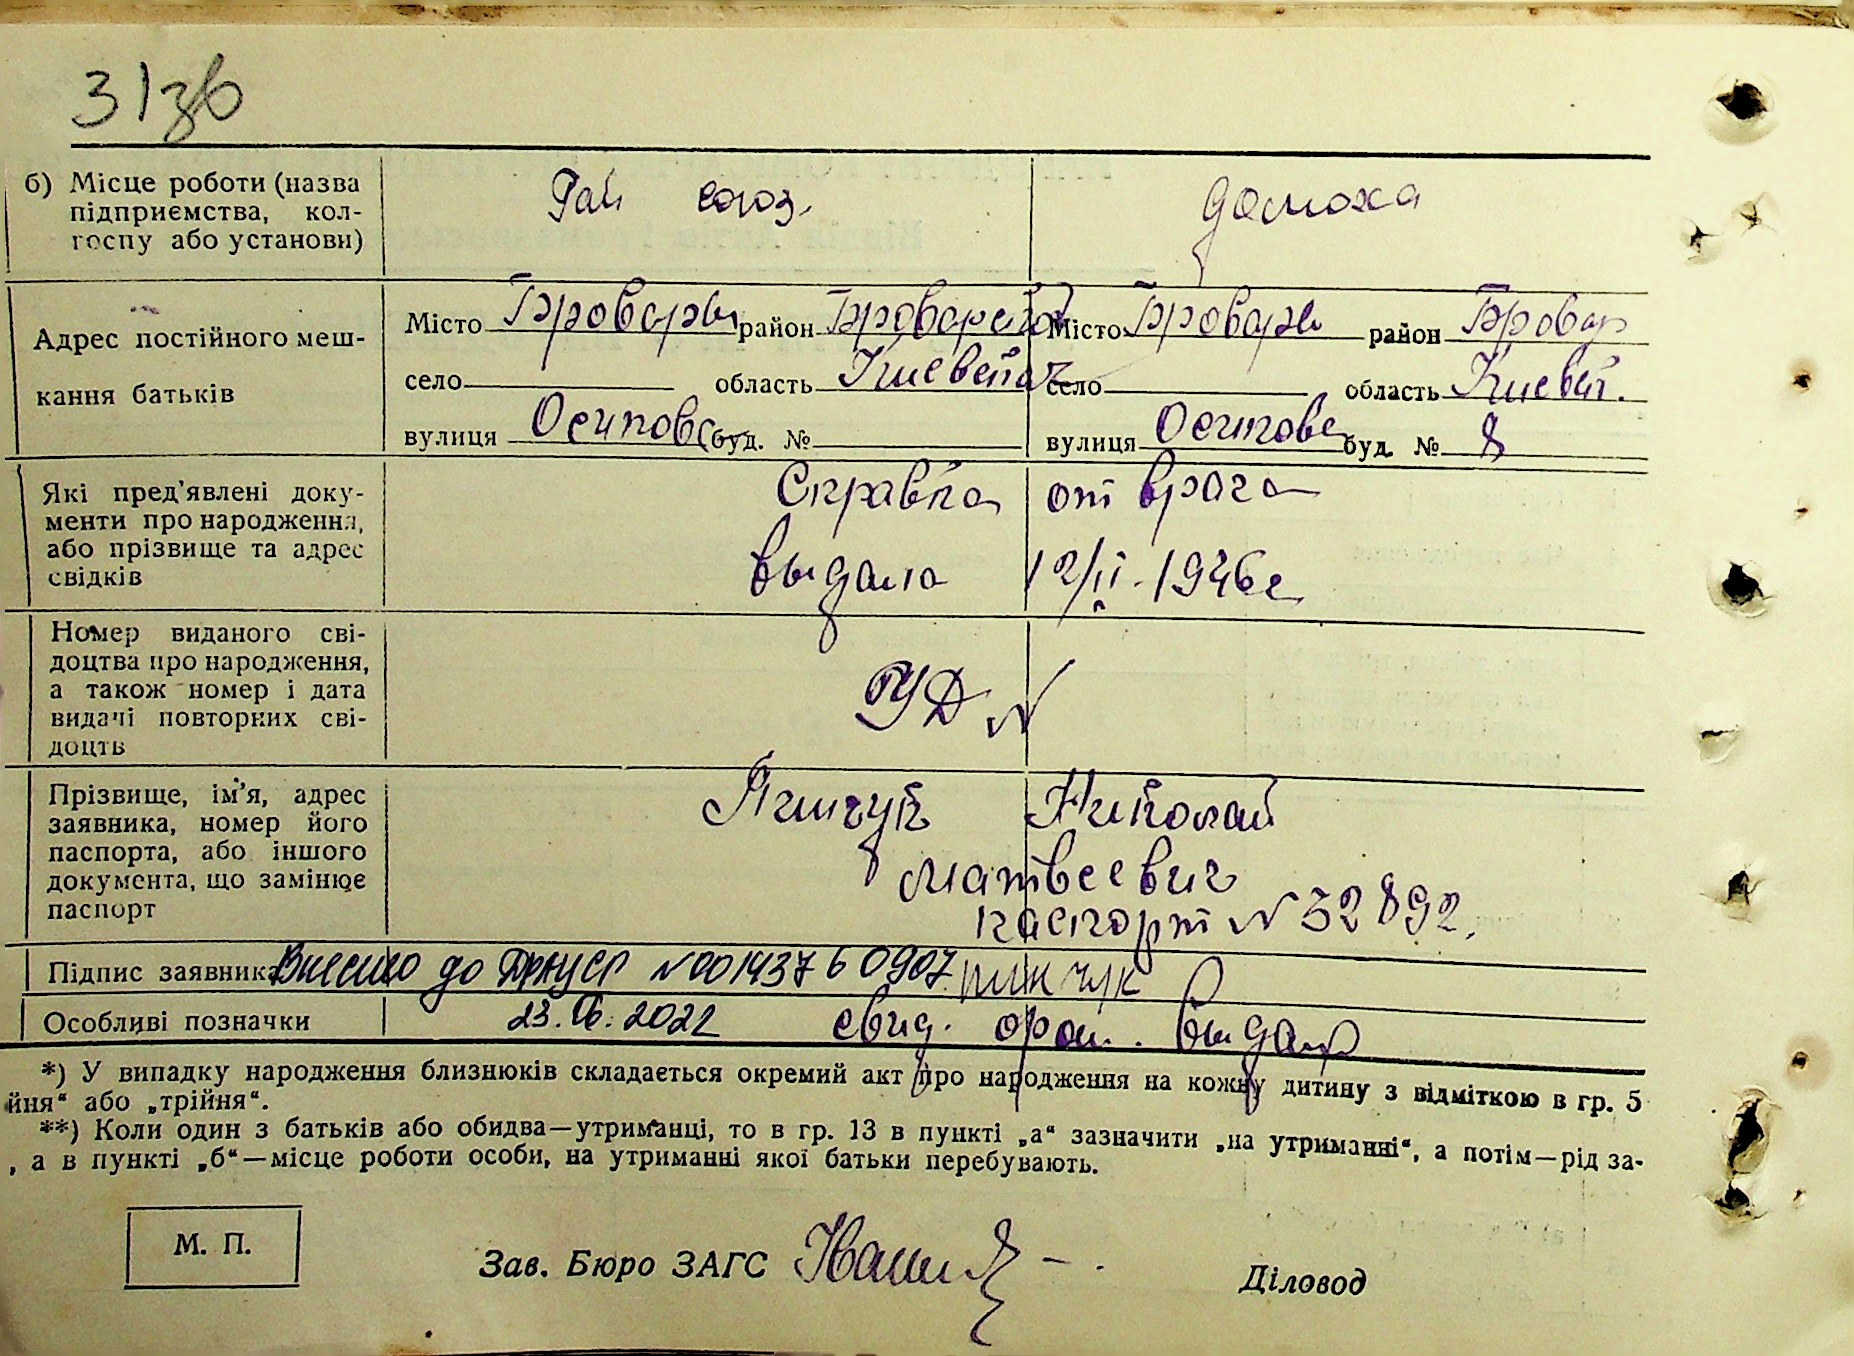 31зв
б) Місце роботи (назва
підприємства, кол-
госпу або установи)
Рай союз.
домоха
Адрес постійного меш-
кання батьків
Місто Бровары район Броварской
село область Киевской
вулиця буд. №
Місто Бровары район Бровар
село область Киевск.
вулиця буд. № 8
Які пред'явлені доку-
менти про народження,
або прізвище та адрес
свідків
Справка от врача
выдана 12/II. 1946г
Номер виданого сві-
доцтва про народження,
а також номер і дата
видачі повторних сві-
доцтв
РУД N
Прізвище, ім'я, адрес
заявника, номер його
паспорта, або іншого
документа, що замінює
паспорт
Николай
Матвеевич
паспорт N 32892.
Підпис заявника Внесено до ДРАЦСГ №00143760907
Особливі позначки 23.06.2022 свид.
*) У випадку народження близнюків складається окремий акт про народження на кожну дитину з відміткою в гр. 5
йня“ або „трійня“.
**) Коли один з батьків або обидва—утриманці, то в гр. 13 в пункті „а“ зазначити „на утриманні“, а потім—рід за-
, а в пункті „б“—місце роботи особи, на утриманні якої батьки перебувають.
М. П.
Зав. Бюро ЗАГС
Діловод